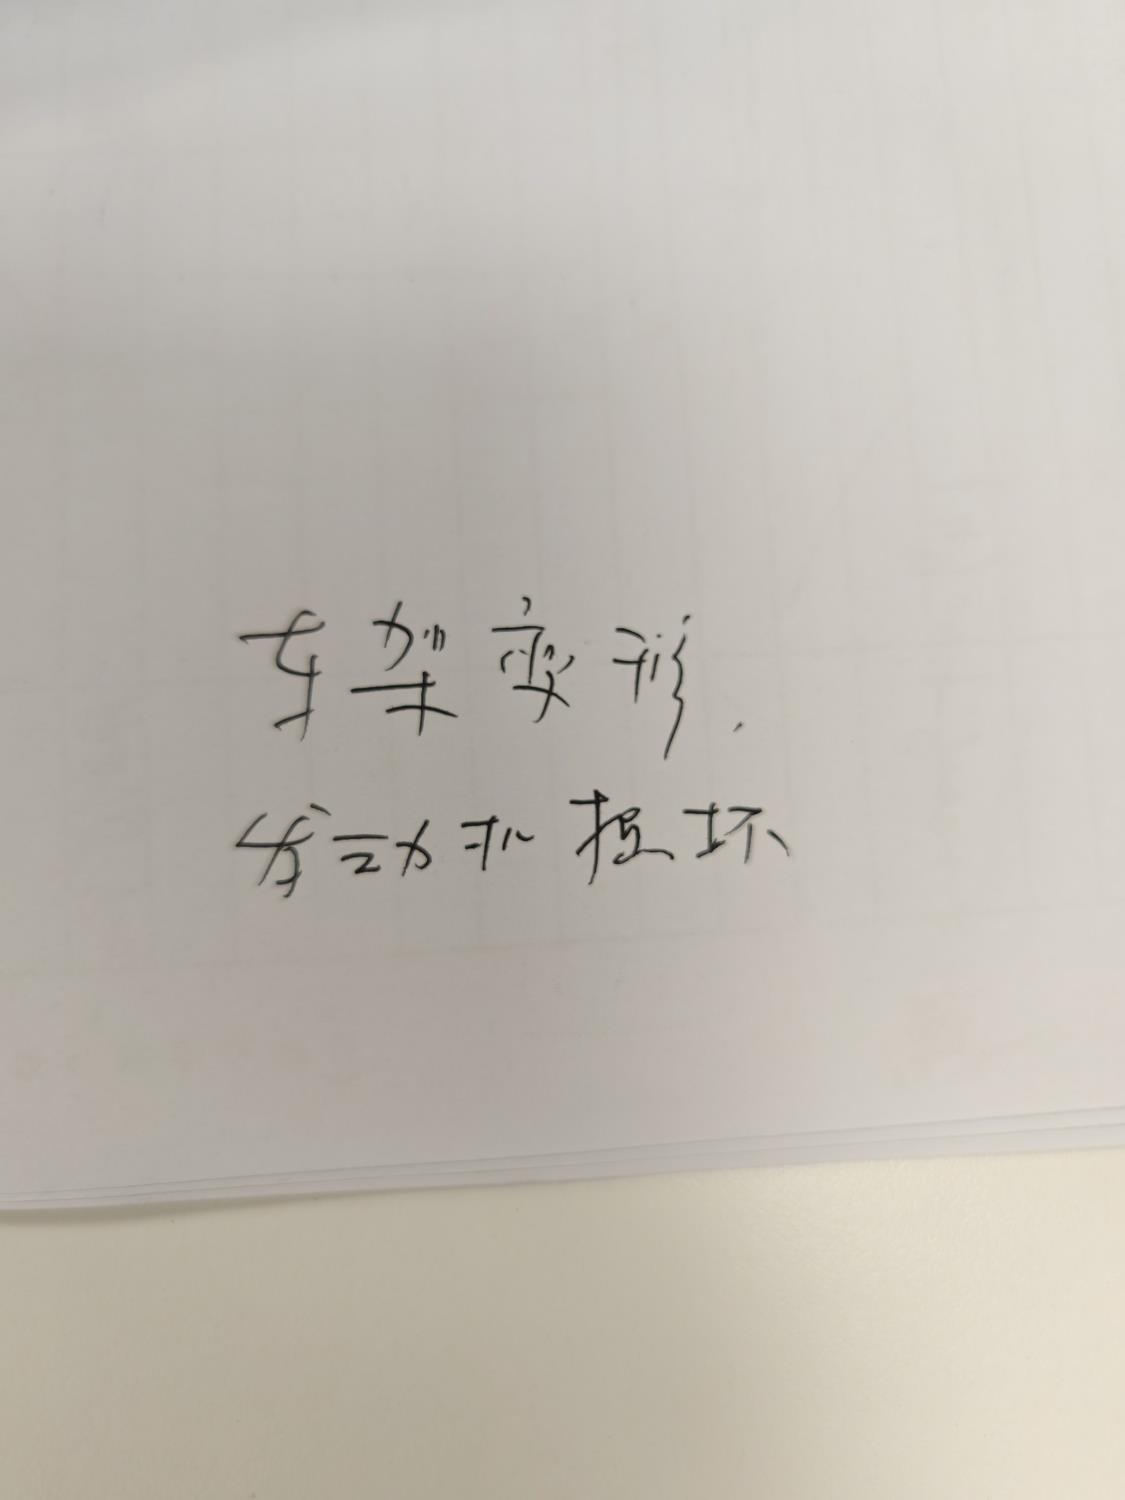 车架变形.
发动机损坏